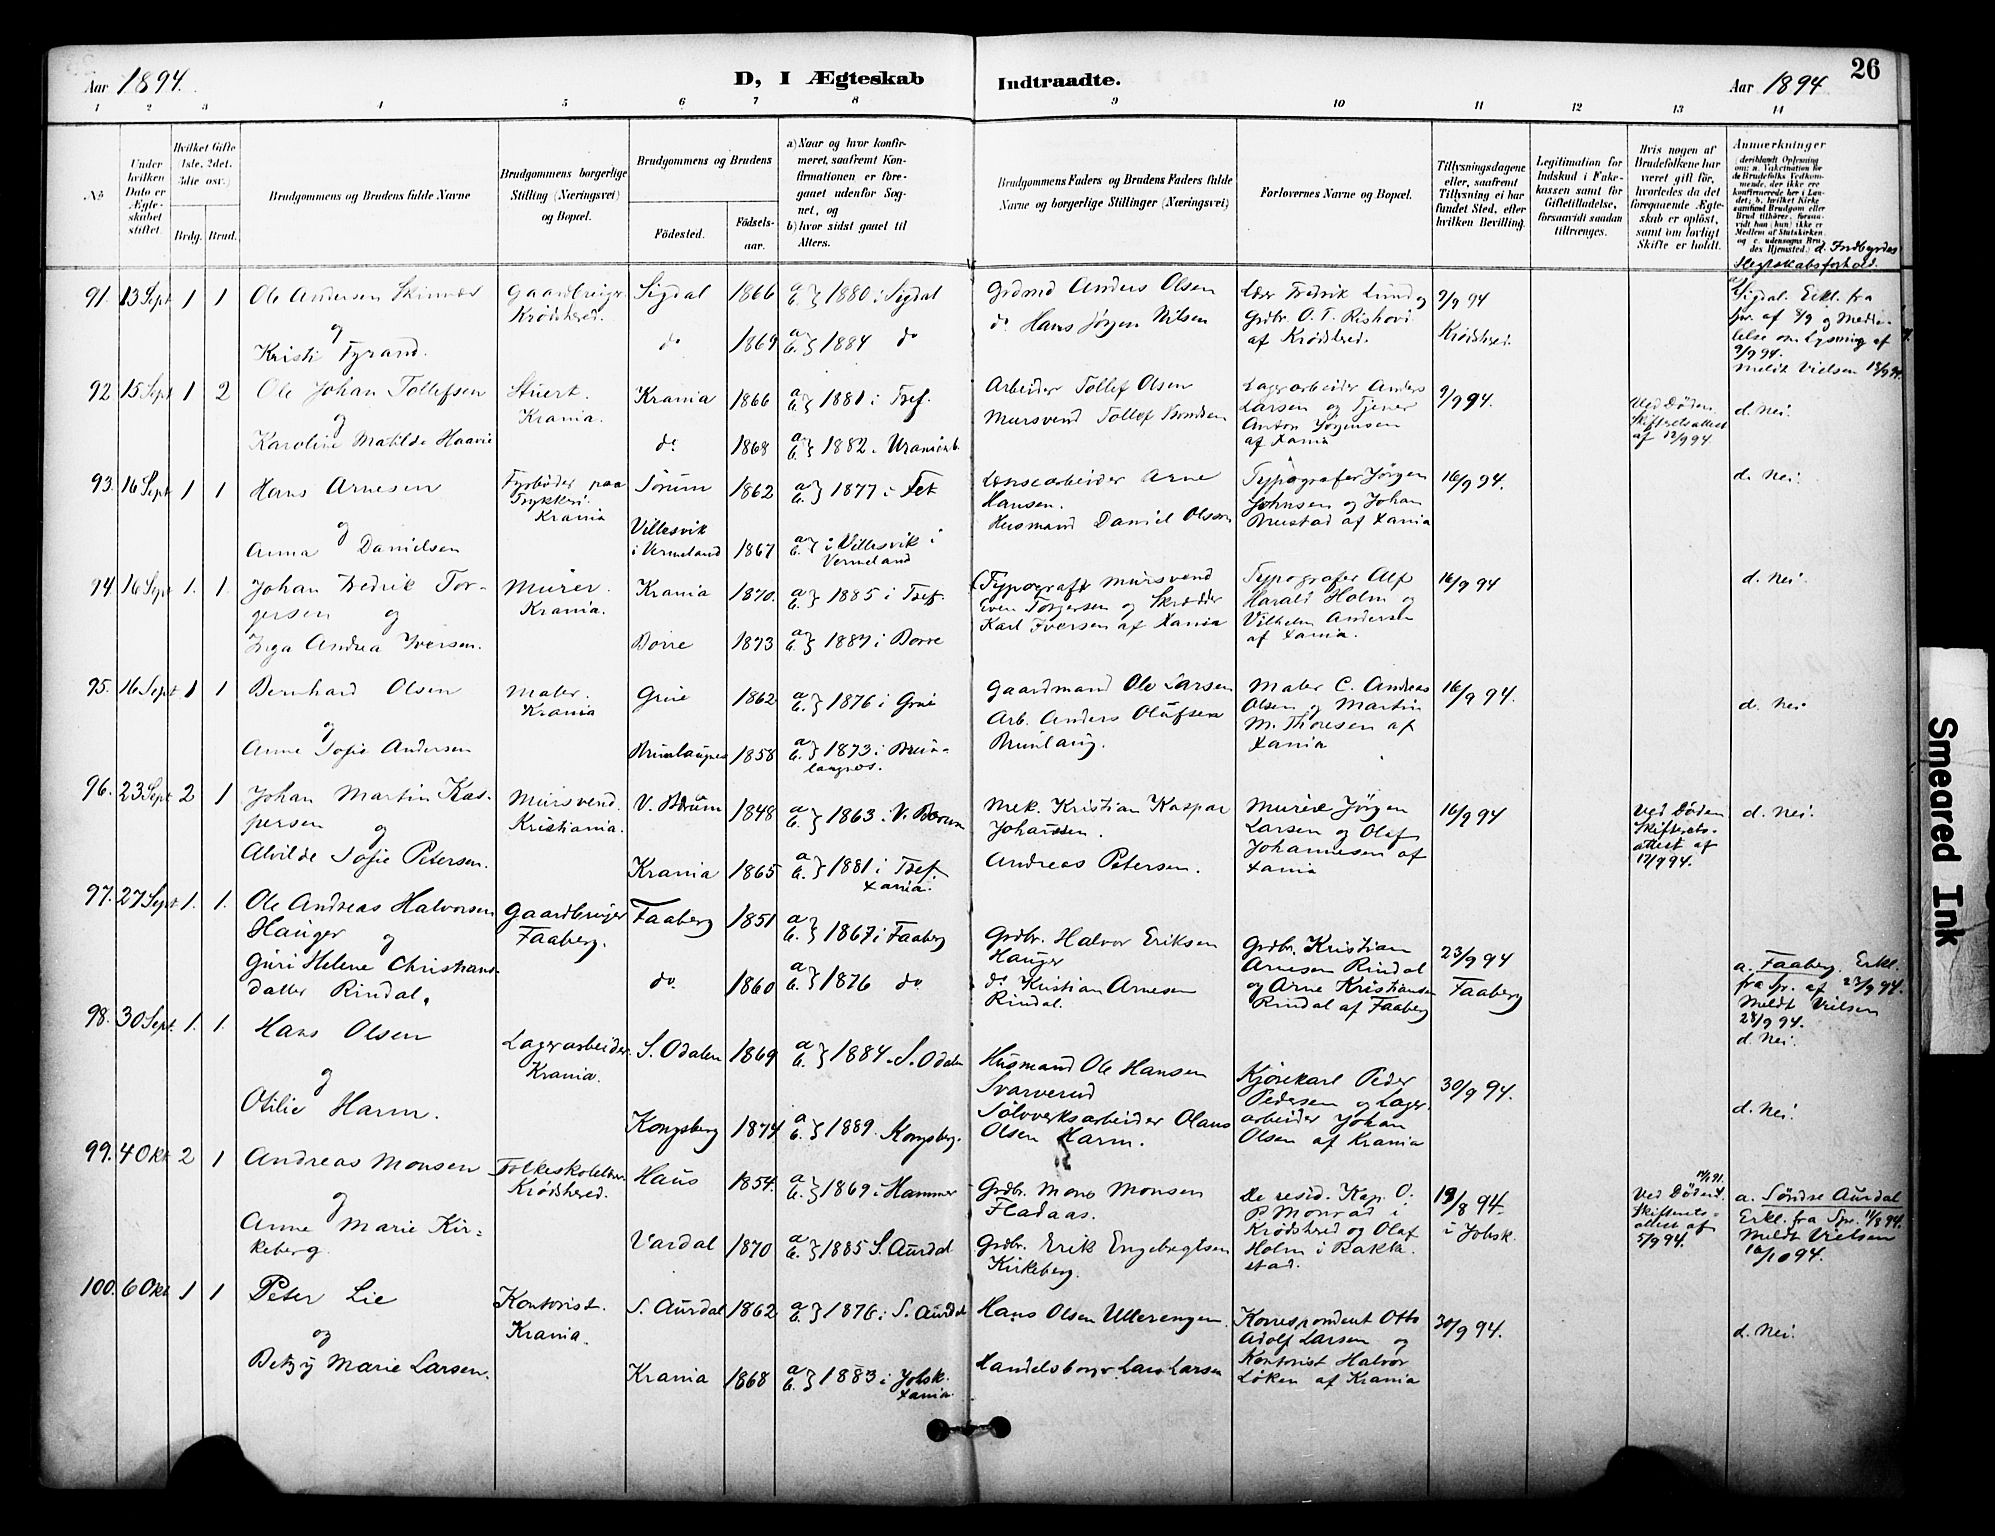 Aar 1894.
D, I Ægteskab
Indtraadte.
Aar 1894
26
1 2 3 4 5 6 7 8 9 10 11 12 13 14
No
Under hvilken Dato er Ægteskabet stiftet.
Hvilket Gifte (1ste, 2det, 3die osv.)
Brdg. Brud.
Brudgommens og Brudens fulde Navne
Brudgommens borgerlige Stilling (Næringsvei) og Bopæl.
Brudgommens og Brudens
Födested.
Födselsaar.
a) Naar og hvor konfirmeret, saafremt Konfirmationen er foregaaet udenfor Sognet, og
b) hvor sidst gaaet til Alters.
Brudgommens Faders og Brudens Faders fulde Navne og borgerlige Stillinger (Næringsvei)
Forlovernes Navne og Bopæl.
Tillysningsdagene eller, saafremt Tillysning ei har fundet Sted, efter hvilken Bevilling.
Legitimation for Indskud i Enkekassen samt for Giftetilladelse, forsaavidt saadan tiltrænges.
Hvis nogen af Brudefolkene har været gift för, hvorledes da det foregaaende Ægteskab er oplöst, samt om lovligt Skifte er holdt.
Anmærkninger
d. Indbyrdes Slegtskabsforhold.
91. 13 Sept 1 1
Ole Andersen Skinnes
og
Kristi Tyrand.
Gaardbruger
Krødshered.
Sigdal 1866 a. b. } 1880 i Sigdal
do 1869 a. b. } 1884 do
Grdmd Anders Olsen
do Hans Jørgen Nilsen
Lær. Fredrik Lund og
Grdbr. O. T. Rishovd
af Krødshered.
9/9 94
Krødshered.
a. Sigdal. Erkl. fra
Spr. af 8/9 og Medde-
lelse om Lysning af
9/9 94.
Meldt Vielsen 13/9 94.
92 15 Sept 1 2
Ole Johan Tollefsen
og
Karoline Matilde Haavie
Stuert.
Krania.
Krania 1866 a. b. } 1881 i Tref.
do 1868 a. b. } 1882. Uranienb.
Arbeider Tollef Olsen
Mursvend Tollef Knudsen
Lagerarbeider Anders
Larsen og Tjener
Anton Jørgensen
af Xania
9/9 94.
Ved Døden.
Skifteretsattest
af 12/9 94
d. Nei.
93. 16 Sept 1 1
Hans Arnesen
og
Anna Danielsen
Fyrbøder paa
Trykkeri.
Krania
Sørum 1862 a. b. } 1877 i Fet
Villesvik
i Vermeland 1867 a. b. } i Villesvik i
Vermeland
Lensearbeider Arne
Hansen.
Husmand Daniel Olsson
Typografer Jørgen
Johnsen og Johan
Brustad af Xania
16/9 94.
d. Nei.
94. 16 Sept 1. 1.
Johan Fredrik Tor-
gersen og
Inga Andrea Iversen.
Murer.
Krania.
Krania 1870. a. b. } 1885 i Tref.
Borre 1873 a. b. } 1887 i Borre
(Typograf) Mursvend
Even Torgersen og Skrædder
Karl Iversen af Xania
Typografer Alf
Harald Holm og
Vilhelm Andersen
af Xania.
16/9 94
d. Nei.
95. 16 Sept. 1 1
Bernhard Olsen
og
Anne Sofie Andersen
Maler.
Krania
Grue 1862 a. b. } 1876 i Grue
Brunlaugnes 1858 a. b. } 1873 i Brun-
laugnes.
Gaardmand Ole Larsen
Arb. Anders Olufsen
Brunlaug.
Maler C. Andreas
Olsen og Martin
M. Thoresen af
Xania
16/9 94.
d. Nei
96. 23 Sept 2 1
Johan Martin Kas-
persen og
Alvilde Sofie Petersen.
Mursvend.
Kristiania.
V. Bærum 1848 a. b. } 1863. V. Bærum
Krania 1865 a. b. } 1881 i Tref.
Xania.
Mek. Kristian Kaspar
Johansen.
Andreas Petersen.
Murere Jørgen
Larsen og Olaf
Johannesen af
Xania
16/9 94
Ved Døden
Skifterets-
attest af
17/9 94.
d. Nei.
97. 27 Sept 1. 1.
Ole Andreas Halvorsen
Hauger og
Guri Helene Christians-
datter Rindal.
Gaardbruger
Faaberg.
Faaberg 1851 a. b. } 1867 i Faaberg
do. 1860 a. b. } 1876 do.
Grdbr. Halvor Eriksen
Hauger
do Kristian Arnesen
Rindal.
Grdbr. Kristian
Arnesen Rindal
og Arne Kristiansen
Rindal af Faaberg
23/9 94
Faaberg
a. Faaberg. Erkl.
fra Spr. af 23/9 94.
Meldt Vielsen
28/9 94.
d. Nei.
98. 30 Sept. 1. 1.
Hans Olsen
og
Otilie Harm.
Lagerarbeider.
Krania.
S. Odalen 1869 a. b. } 1884. S. Odalen
Kongsberg 1874 a. b. } 1889. Kongsberg.
Husmand Ole Hansen
Svarverud
Sølvverksarbeider Olaus
Olsen Harm.
Kjørekarl Peder
Pedersen og Lager-
arbeider Johan
Olsen af Krania
30/9 94.
d. Nei.
99. 4 Okt 2 1
Andreas Monsen
og
Anne Marie Kir-
keberg.
Folkeskolelærer
Krødshered.
Haus 1854. a. b. } 1869 i Hammer
Vardal 1870 a. b. } 1885 S. Aurdal
Grdbr. Mons Monsen
Fladaas.
Grdbr. Erik Engebregtsen
Kirkeberg.
De resid. Kap. O.
P Monrad i
Krødshered og Olaf
Holm i Rakke-
stad.
19/8 94.
i Jobsk.
Ved Døden
Skifterets-
attest af
5/9 94.
a. Søndre Aurdal
Erkl. fra Spr. 11/8 94.
Meldt Vielsen
10/10 94.
100. 6 Okt 1 1
Peter Lie
og
Betzy Marie Larsen.
Kontorist.
Krania.
S. Aurdal 1862 a. b. } 1876 i S. Aurdal
Krania 1868 a. b. } 1883 i Jobsk.
Xania
Hans Olsen Ullerengen.
Handelsborger Lars Larsen
Korrespondent Otto
Adolf Larsen og
Kontorist Halvor
Løken af Krania
30/9 94.
d. Nei.
Smeared Ink